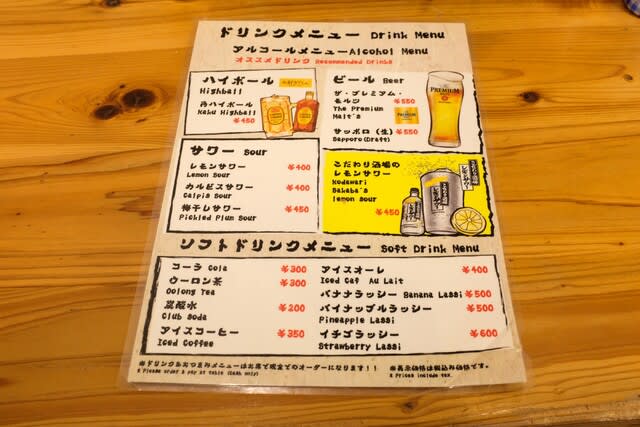 ドリンクメニュー Drink Menu
アルコールメニューAlcohol Menu
オススメドリンク Recommended Drinks
ハイボール
Highball
角ハイボール
Kaku Highball
¥450
ビール Beer
ザ・プレミアム・
モルツ ¥550
The Premium
Malt's
サッポロ（生） ¥550
Sapporo(Draft)
PREMIUM
サワー Sour
レモンサワー ¥400
Lemon Sour
カルピスサワー ¥400
Calpis Sour
梅干しサワー ¥450
Pickled Plum Sour
こだわり酒場の
レモンサワー
Kodawari
Sakaba's
lemon sour
¥450
ソフトドリンクメニュー Soft Drink Menu
コーラ Cola ¥300
ウーロン茶 ¥300
Oolong Tea
炭酸水 ¥200
Club Soda
アイスコーヒー ¥350
Iced Coffee
アイスオーレ ¥400
Iced Caf Au Lait
バナナラッシー Banana Lassi ¥500
パイナップルラッシー ¥500
Pineapple Lassi
イチゴラッシー ¥600
Strawberry Lassi
※ドリンク&おつまみメニューはお席で現金でのオーダーになります！！
※Please order & pay at table (Cash only)
※表示価格は税込み価格です。
※Prices include tax.